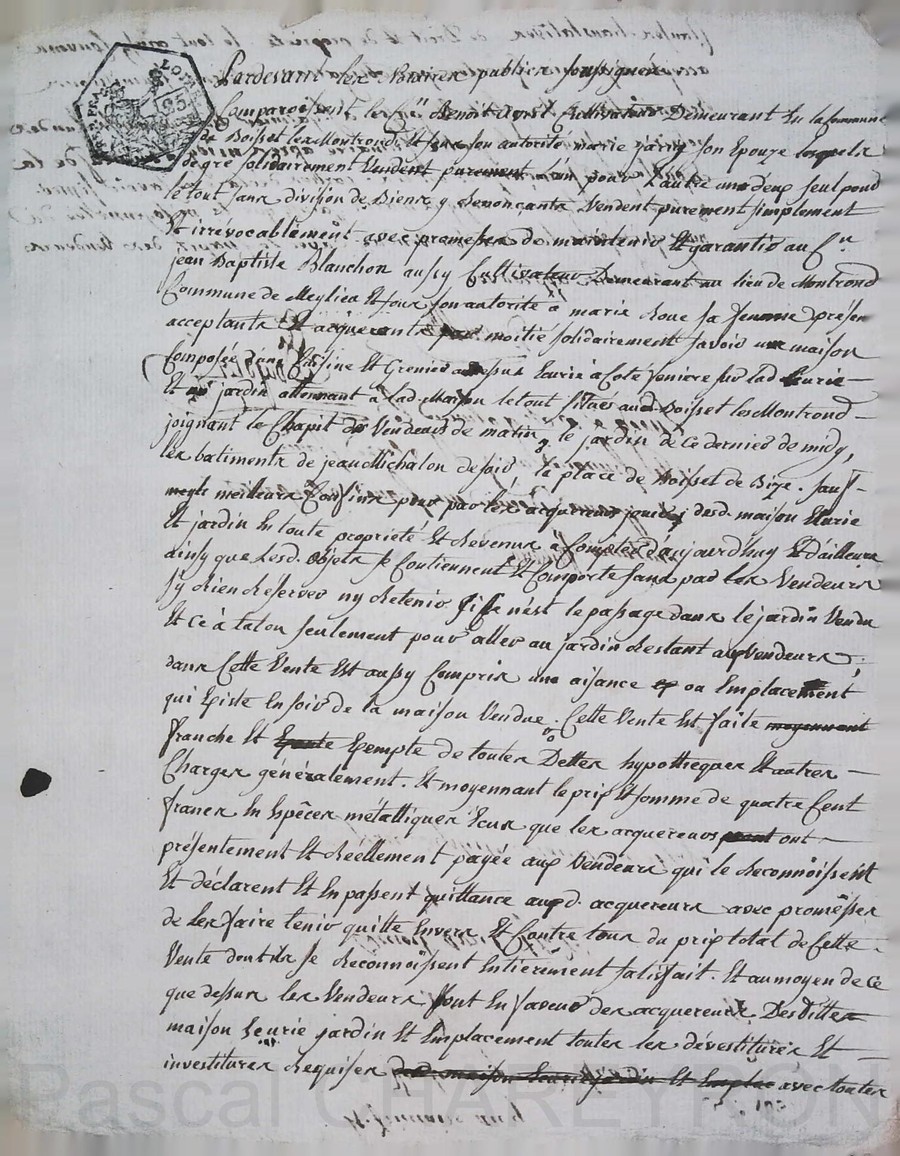 Pardevant les Notaires publics soussignés
Comparoissent le Cen Benoit Cultivateur Demeurant En la Commune
de Boisset les Montrond, Et sous son autorité marie son Epouze lesquels
degré solidairement Vendent purement l'un pour l'autre un deux seul pour
le tout sans division de Biens y Renonçants Vendent purement simplement
Et irrévocablement avec promesse de maintenir Et garantir au Cen
jean Baptiste Blanchon aussy Cultivateur Demeurant au lieu de Montrond
Commune de Meylieu Et sous son autorité a marie sa femme présen
acceptants Et acquerants par moitié solidairement savoir une maison
Composée d'une Cuisine Et Grenier au dessus Ecurie a Coté feniere sur lad Ecurie
Et un jardin attennant a lad Maison le tout situés aud Boisset les Montrond
joignant le Chapit des Vendeurs de matin, le jardin de Ce dernier de midy,
les batiments de jean Michalon de soir la place de Boisset de Bize. Sauf
meilleurs Confins pour par les acquereurs jouir desd. maison Ecurie
Et jardin En toute propriété Et Revenus a Compter d'aujourd'huy Et d'ailleurs
ainsy que Lesd. Objets se Contiennent Et Comporte sans par les Vendeurs
s'y Rien Reserver ny Retenir Si Ce n'est le passage dans le jardin Vendu
Et Ce à talon seulement pour aller au jardin Restant aux Vendeurs ;
dans Cette Vente Est aussy Compris une aisance ou Emplacement
qui Existe En soir de la maison Vendue. Cette Vente Est faite moyennant
franche Et Exempte de toutes Dettes hypotheques Et autres
Charges généralement. Et moyennant le prix Et somme de quatre Cent
francs En Espêces métalliques Ecus que les acquereurs ont
présentement Et Réellement payée aux Vendeurs qui le Reconnoissent
Et déclarent Et En passent quittance auxd. acquereurs avec promesses
de Les faire tenir quitte Envers Et Contre tous du prix total de Cette
Vente dont ils se Reconnoissent Entièrement satisfait. Et au moyen de Ce
que dessus les Vendeurs font En faveur des acquereurs Desdittes
maison Ecurie jardin Et Emplacement toutes les dévestitures Et
investitures Requises dud maison Ecurie jardin Et Emplac avec toutes
Pascal CHAREYRON